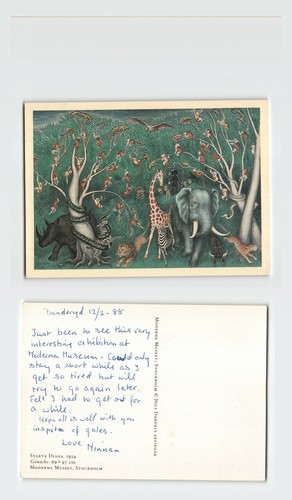 Danderyd 12/2-88
Just been to see this very
interesting exhibition at
Moderna Museum. Could only
stay a short while as I
get so tired but will
try to go again later.
Felt I had to get out for
a while.
Hope all is well with you
inspite of gales.
Love Ninnan
Svarta Diana, 1924
Gouache. 69 x 97 cm
Moderna Museet, Stockholm